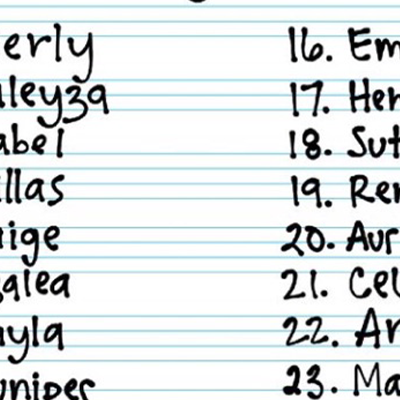 erly
ley39
abel
llas
ige
galea
ayla
uniper
16. Em
17. Her
18. Sut
19. Rer
20. Aur
21. Cel
22. Ar
23. Ma